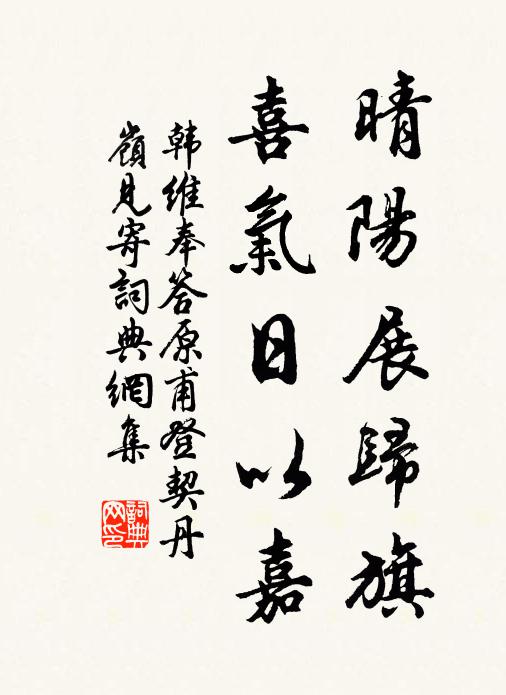 晴陽展歸旗
喜氣日以嘉
韩維奉答原甫登契丹
嶺見寄詞典網集
詞典
网印